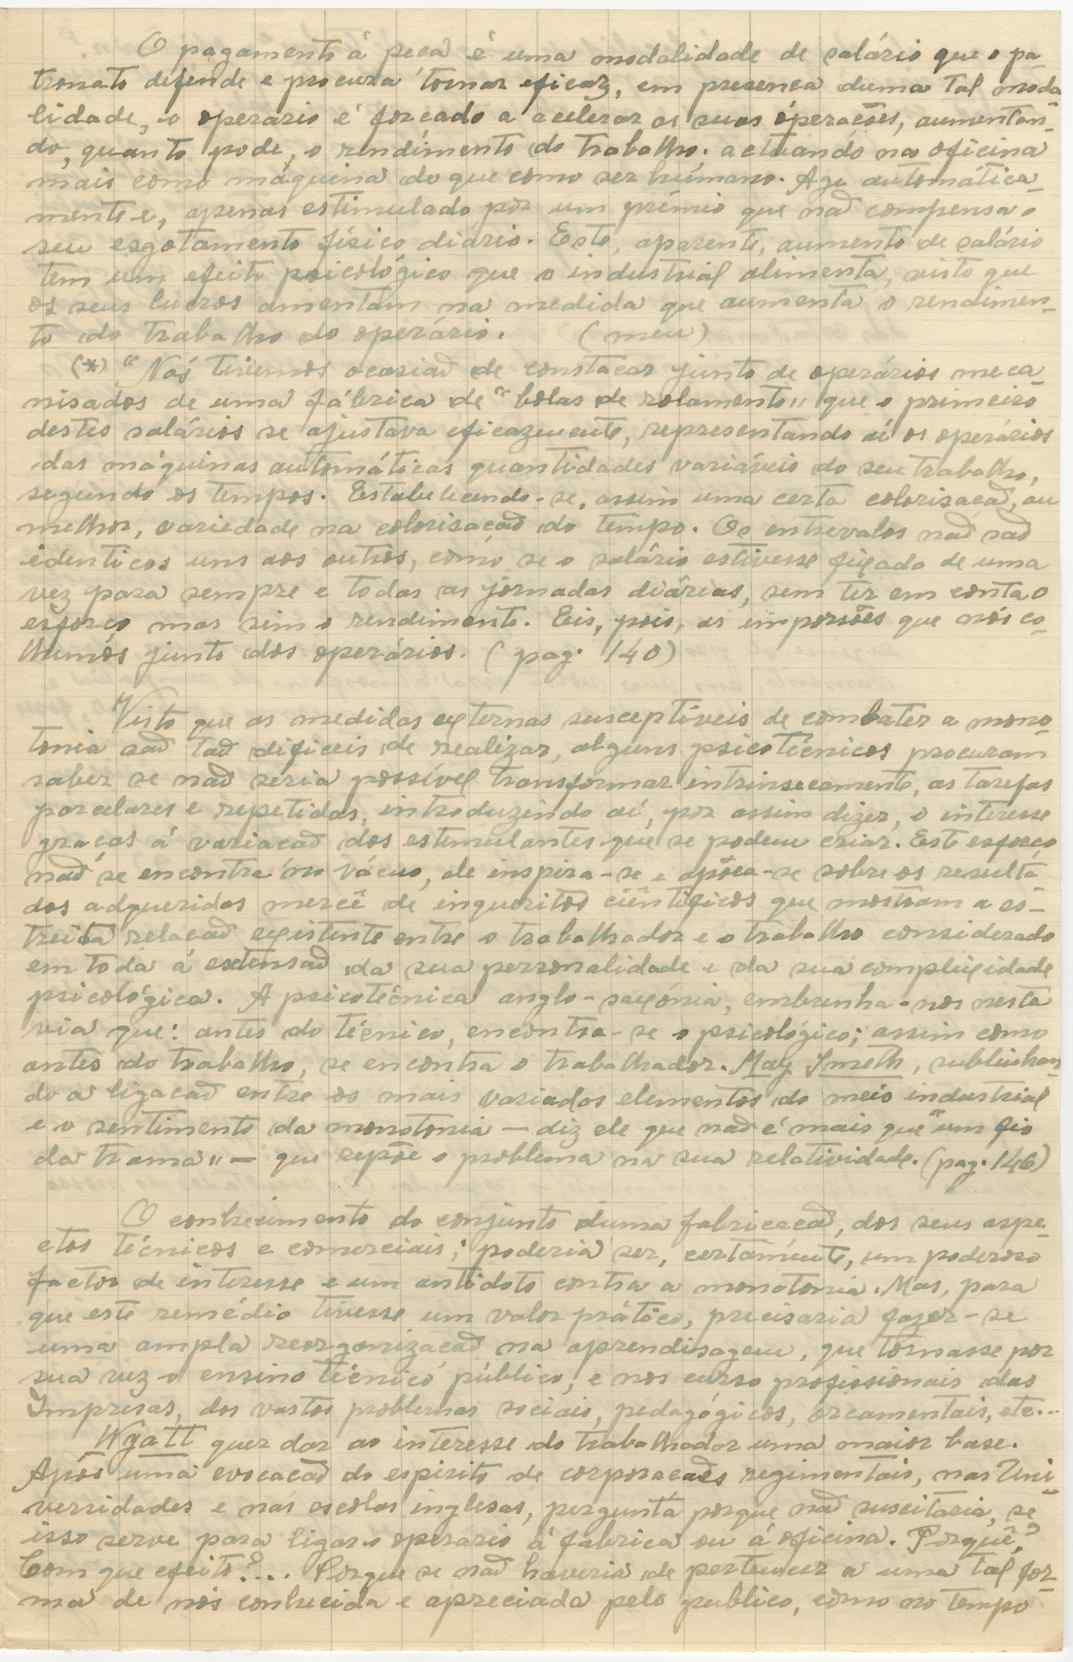 O pagamento á peça é uma modalidade de salário que o pa-
tronato difende e procura tornar eficaz, em presença duma tal moda-
lidade, o operário é forçado a acelerar as suas óperações, aumentan-
do, quanto pode, o rendimento do trabalho; actuando na oficina
mais como máquina do que como ser húmano. Age automática-
mente e, apenas estimulado por um prémio que não compensa o
seu esgotamento físico diário. Este, aparente, aumento de salário
tem um efeito psicológico que o industrial alimenta, visto que
os seus lucros amentam na medida que aumenta o rendimen-
to do trabalho do operário. (meu)
(*) "Nós tivemos ocasião de constatar junto de operários meca-
nisados de uma fábrica de "bolas de rolamento" que o primeiro
destes salários se ajustava eficazmente, representando aí os operários
das máquinas automáticas quantidades variáveis do seu trabalho,
segundo os tempos. Estabelecendo-se, assim uma certa colorisação, ou
melhor, variedade na colorisação do tempo. Os entrevalos não são
identicos uns aos outros, como se o salário estivesse fixado de uma
vez para sempre e todas as jornadas diárias, sem ter em conta o
esforço mas sim o rendimento. Eis, pois, as impressões que nós co-
lhemos junto dos operários. (pag. 140)
"Visto que as medidas externas susceptíveis de combater a mono-
tonia são tão dificeis de realizar, alguns psicotécnicos procuram
saber se não seria possível transformar intrinsecamente, as tarefas
parcelares e repetidas, introduzindo aí, por assim dizer, o interesse
graças á variação dos estimulantes que se podem criar. Este esforço
não se encontra no vácuo, ele inspira-se e apoia-se sobre os resulta-
dos adqueridos mercê de inqueritos ciêntificos que mostram a es-
treita relação existente entre o trabalhador e o trabalho considerado
em toda á extensão da sua personalidade e da sua complexidade
psicológica. A psicotécnica anglo-saxónia, embrenha-nos nesta
via que: antes do técnico, encontra-se o psicológico; assim como
antes do trabalho, se encontra o trabalhador. May Smeth, sublinhan-
do a ligação entre os mais variados elementos do meio industrial
e o sentimento da monotonia — diz ele que não é mais que "um fio
da trama" — que repõe o problema na sua relatividade. (pag. 146)
O conhecimento do conjunto duma fabricação, dos seus aspe-
ctos técnicos e comerciais; poderia ser, certamente, um poderoso
factor de interesse e um antidoto contra a monotonia. Mas, para
que este remédio tivesse um valor prático, precisaria fazer-se
uma ampla reorganização na aprendisagem, que tornasse por
sua vez o ensino técnico público, e nos curso profissionais das
Impresas, dos vastos problemas sociais, pedagógicos, orcamentais, etc...
Wyatt quer dar ao interesse do trabalhador uma maior base.
Após uma evocação do espirito de corporações regimentais, nas Uni-
versidades e nas escolas inglesas, pergunta porque não suscitaria, se
isso serve para ligar o operario á fabrica ou á oficina. Porquê?
Com que efeito?... Porque se não haveria de pertencer a uma tal for-
ma de nós conhecida e apreciada pelo publico, como no tempo